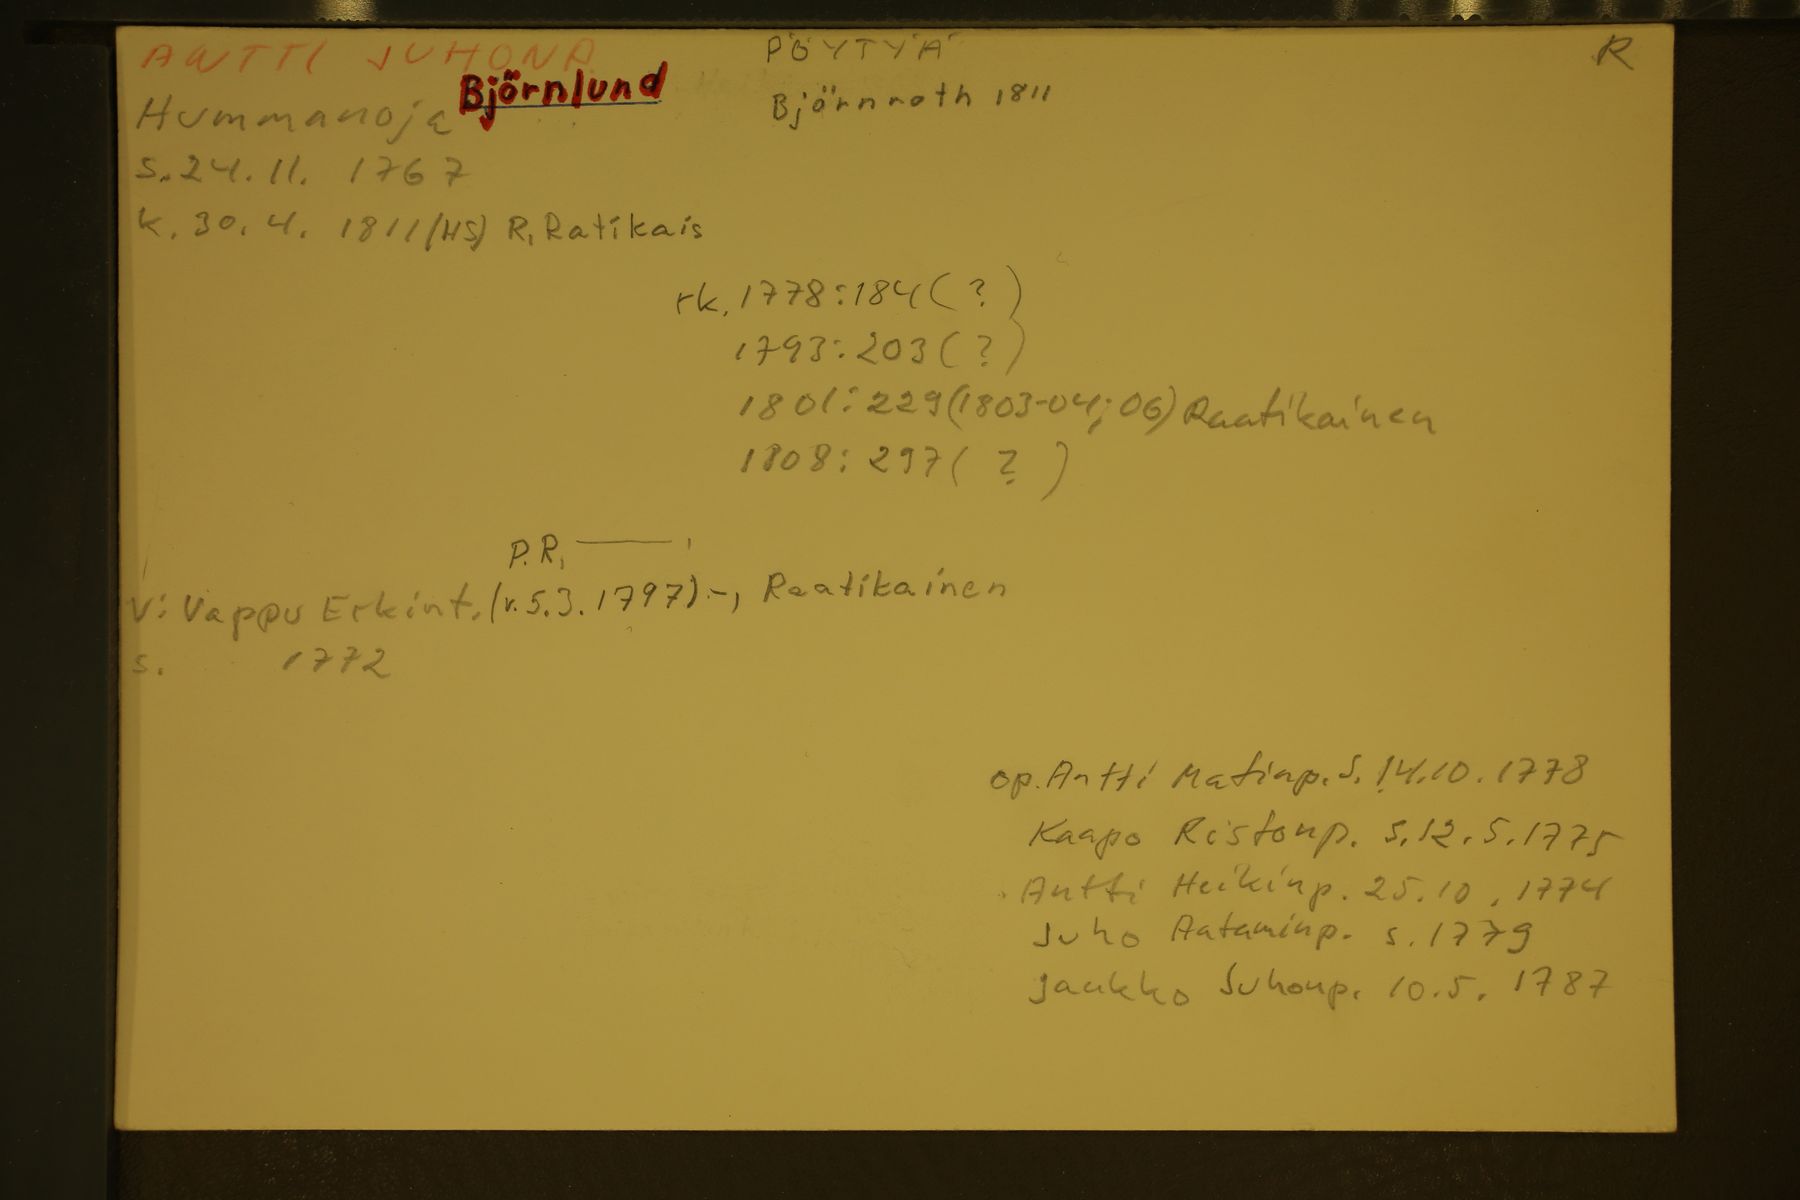 ANTTI JUHONP.
PÖYTYÄ
R
Hummanoja Björnlund
Björnroth 1811
s. 24.11. 1767
k. 30.4. 1811 (HS) R, Ratikais
rk. 1778:184 (?)
1793:203 (?)
1801:229 (1803-04; 06) Raatikainen
1808:297 ( ? )
P.R,
V: Vappu Erkint. (v. 5.3. 1797) -, Raatikainen
s. 1772
op. Antti Matinp. s. 14.10. 1778
Kaapo Ristonp. s. 12.5. 1775
Antti Heikinp. 25.10. 1774
Juho Aataminp. s. 1779
Jaukko Juhonp. 10.5. 1787